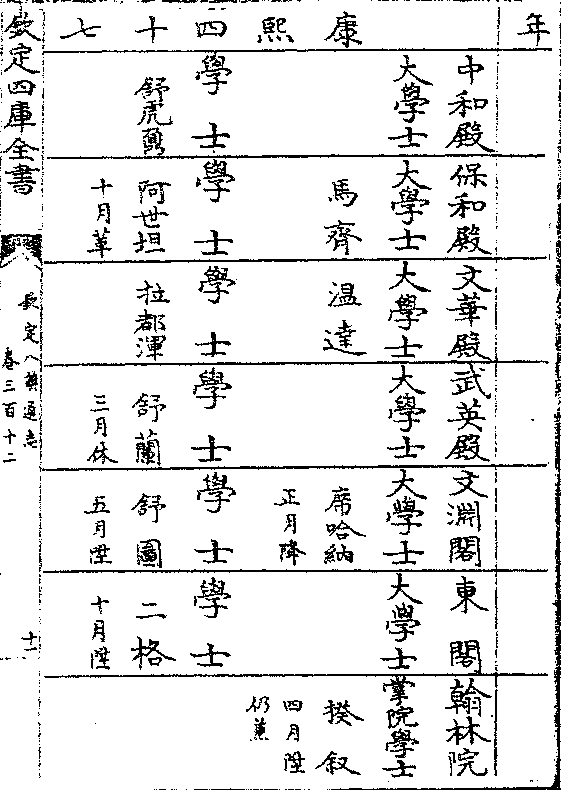 年
中和殿 保和殿 文華殿 武英殿 文淵閣 東閣 翰林院
大學士 大學士 大學士 大學士 大學士 大學士 掌院學士
康 馬齊 溫達 席哈納 揆叙
熙 正月降 四月陞
仍兼
四 學士 學士 學士 學士 學士 學士
十 阿世坦 拉都渾 舒蘭 舒圖 二格
七 十月革 三月休 五月陞 十月陞
欽定四庫全書
欽定八旗通志
卷三百十二
十一